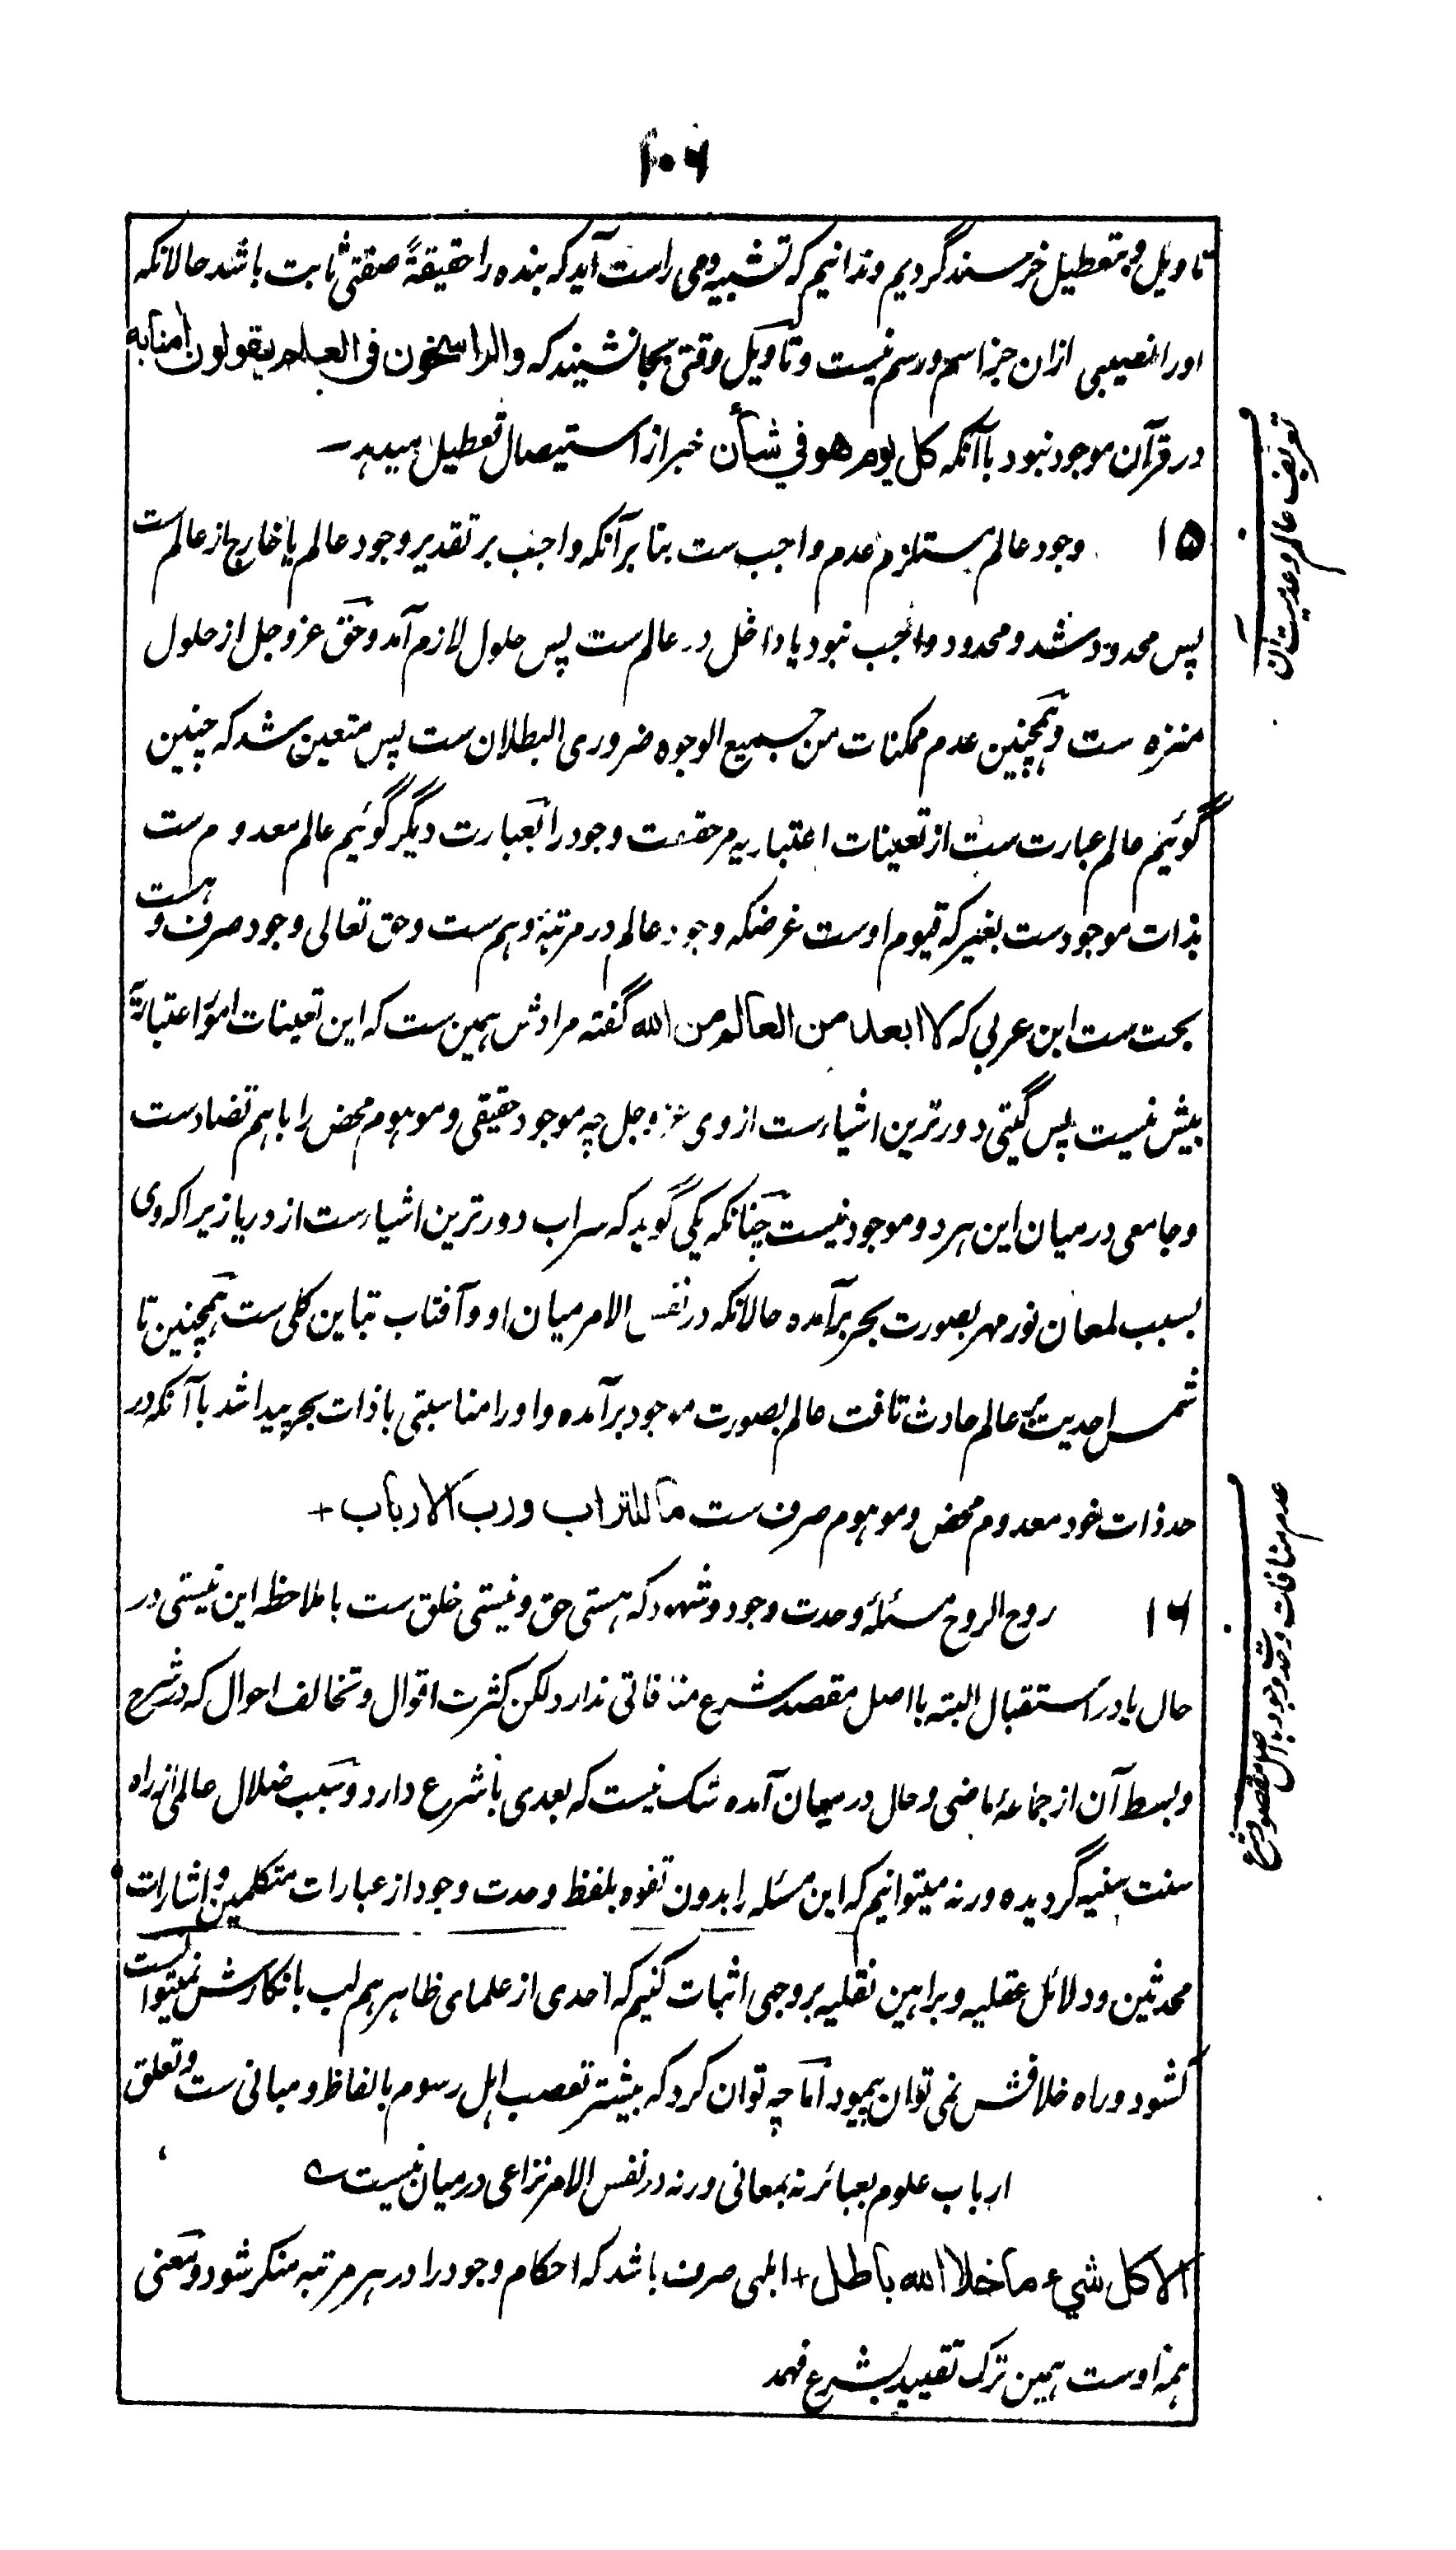 ۱۰۶
تاویل و بتعطیل خرسند گردیم و ندانیم که تشبیه وقتی راست آید که بنده را حقیقةً صفتی ثابت باشد حالانکه
اورا نصیبی ازان جز اسم و رسم نیست و تأویل وقتی بجا نشیند که والراسخون فی العلم یقولون اٰمنا به
در قرآن موجود نبود با آنکه کل یوم هو فی شأن خبر از استیصال تعطیل میدهد —
۱۵ وجود عالم مستلزم عدم واجب ست بنا بر آنکه واجب بر تقدیر وجود عالم یا خارج از عالم ست
پس محدود شد و محدود واجب نبود یا داخل در عالم ست پس حلول لازم آمد و حق عز و جل از حلول
منزه ست و همچنین عدم ممکنات من جمیع الوجوه ضروری البطلان ست پس متعین شد که چنین
گوئیم عالم عبارت ست از تعینات اعتباریه مر حقیقت وجود را بعبارت دیگر گوئیم عالم معدوم ست
بذات موجودست بغیر که قیوم اوست غرضکه وجود عالم در مرتبهٔ وهم ست و حق تعالی وجود صرف و هست
بحت ست ابن عربی که لا ابعد من العالم من الله گفته مرادش همین ست که این تعینات امور اعتباریه
بیش نیست پس گیتی دورترین اشیاءست از وی عز و جل چه موجود حقیقی و موهوم محض را باهم تضادست
و جامعی درمیان این هر دو موجود نیست چنانکه یکی گوید که سراب دورترین اشیاءست از دریا زیراکه وی
بسبب لمعان نور مهر بصورت بحر برآمده حالانکه در نفس الامر میان او و آفتاب تباین کلی ست همچنین تا
شمس احدیت بر عالم حادث تافت عالم بصورت موجود برآمده و اورا مناسبتی با ذات بحر پیدا شد با آنکه در
حد ذات خود معدوم محض و موهوم صرف ست ما للتراب ورب الارباب +
۱۶ روح الروح مسئلهٔ وحدت وجود و شهود که هستی حق و نیستی خلق ست با ملاحظه این نیستی در
حال یا در استقبال البته با اصل مقصد شرع منافاتی ندارد لکن کثرت اقوال و تخالف احوال که در شرح
و بسط آن از جماعهٔ ماضی و حال درمیان آمده شک نیست که بعدی با شرع دارد و سبب ضلال عالمی از راه
سنت سنیه گردیده ورنه میتوانیم که این مسئله را بدون تفوه بلفظ وحدت وجود از عبارات متکلمین و اشارات
محدثین و دلائل عقلیه و براهین نقلیه بروجهی اثبات کنیم که احدی از علمای ظاهر هم لب بانکارش نمیتوانست
کشود و راه خلافش نمی توان پیمود اما چه توان کرد که بیشتر تعصب اهل رسوم بالفاظ و مبانی ست و تعلق
ارباب علوم بعبائر نه بمعانی ورنه در نفس الامر نزاعی درمیان نیست ؎
الا کل شیء ما خلا الله باطل + ابلهی صرف باشد که احکام وجود را در هر مرتبه منکر شود و معنی
همه اوست همین ترک تقیید بشرع فهمد
تعریف عالم و عدمیت آن
عدم منافات وحدت وجود با اصل مقصود شرع